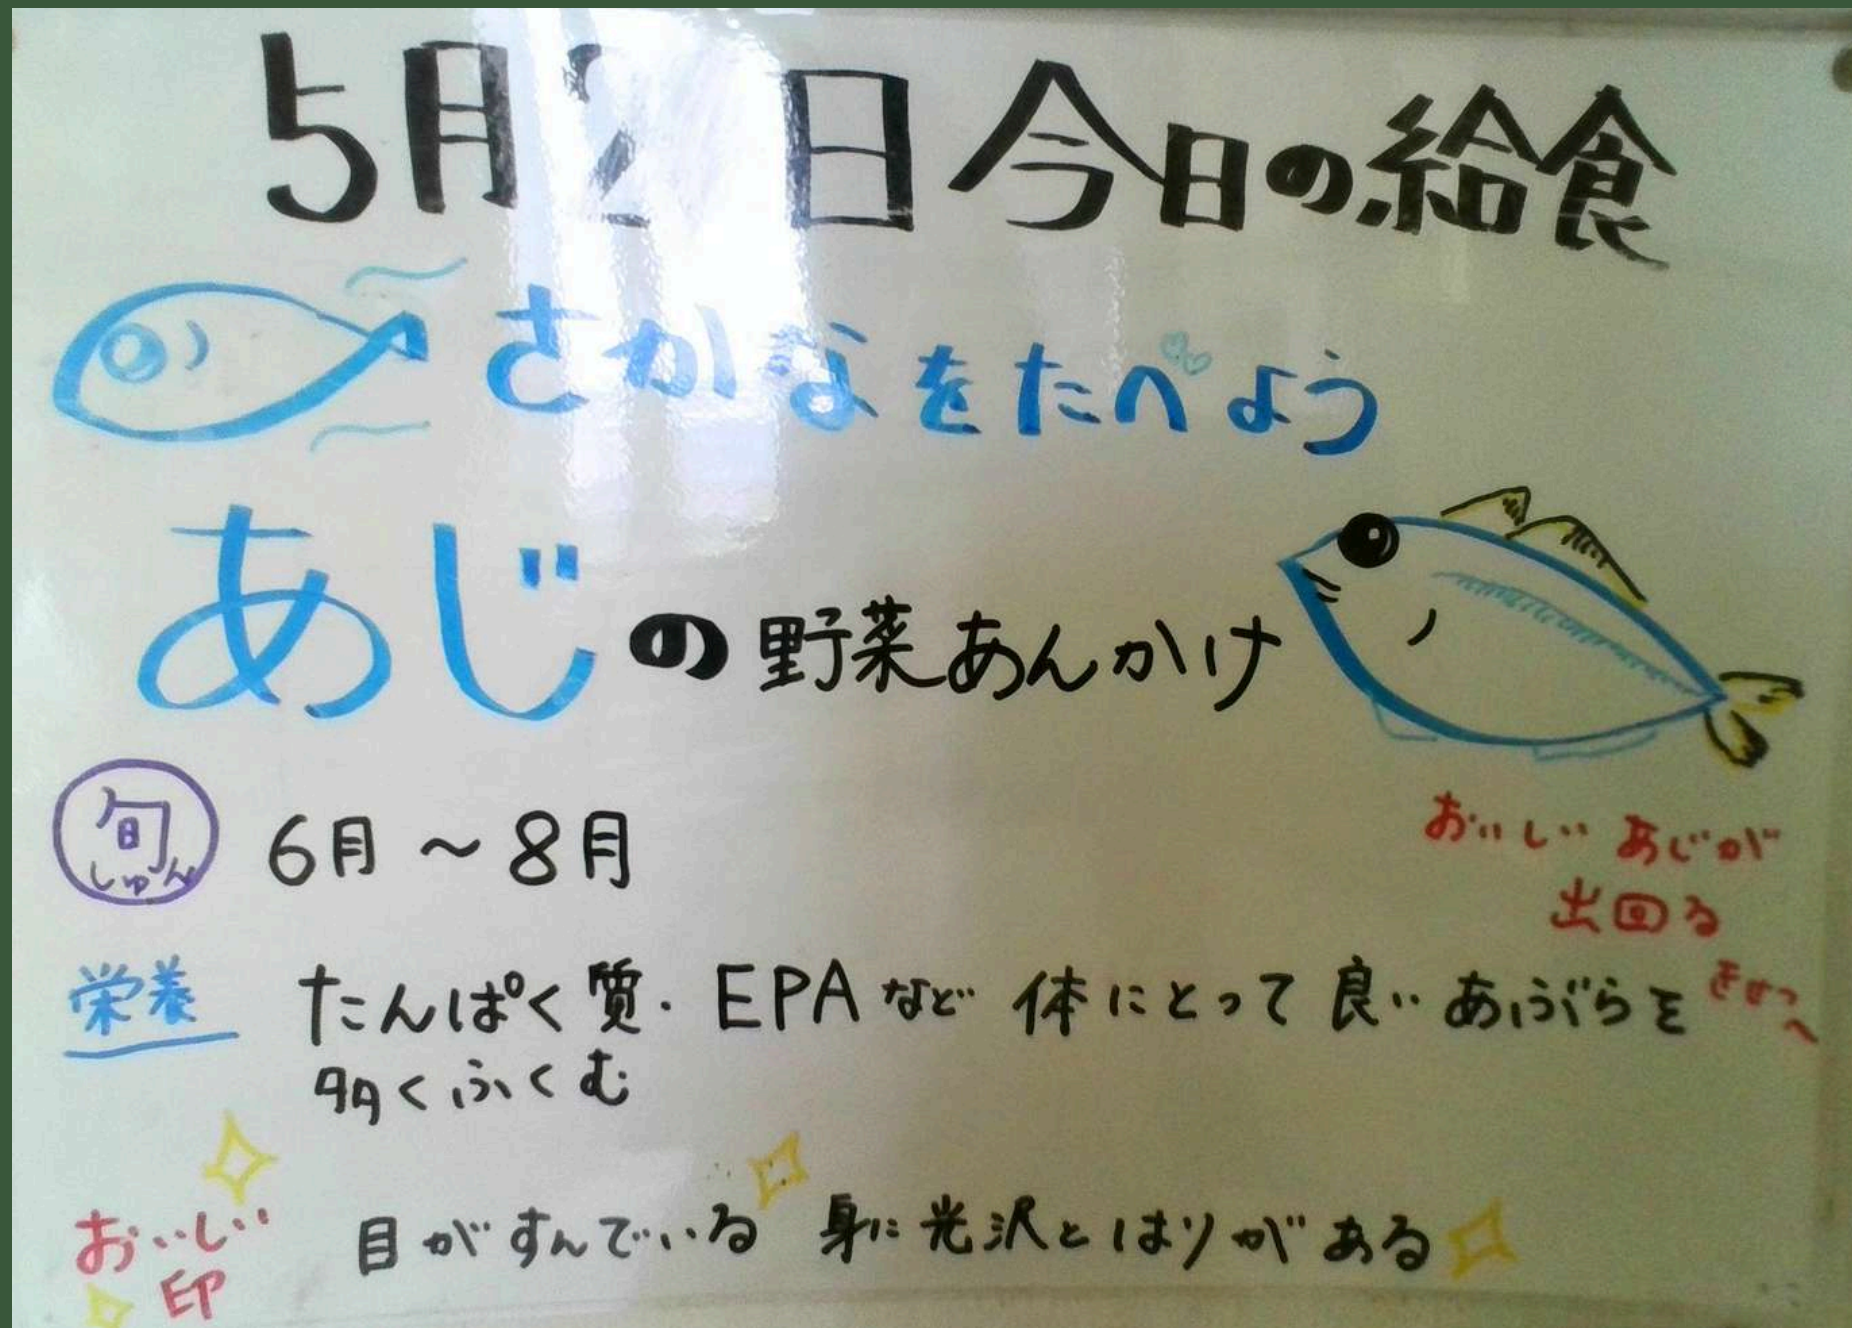 5月2 日 今日の給食
さかなをたべよう
あじの野菜あんかけ
旬 6月～8月
しゅん
おいしい あじが
出回る
栄養 たんぱく質・EPAなど 体にとって良いあぶらを
多くふくむ
おいしい 目がすんでいる 身に光沢とはりがある
印